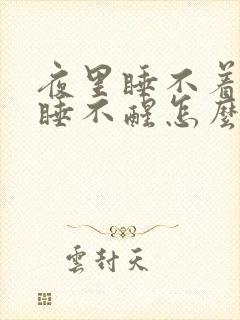 夜里睡不着
睡不醒怎麼
雲封天